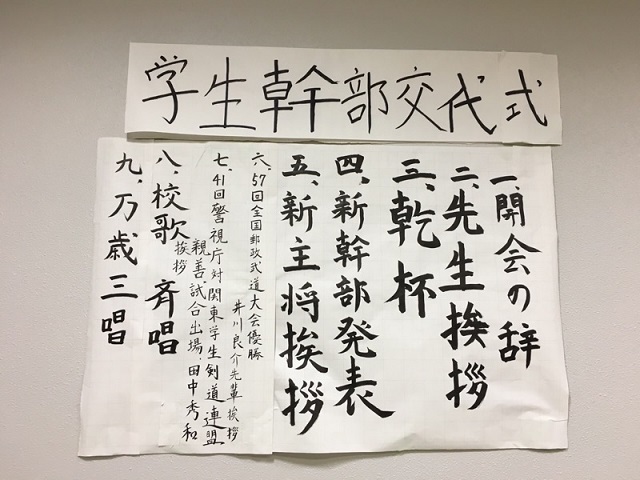 学生幹部交代式
一、開会の辞
二、先生挨拶
三、乾杯
四、新幹部発表
五、新主将挨拶
六、57回全国郵政武道大会優勝
井川良介先輩挨拶
七、41回警視庁対関東学生剣道連盟
親善試合出場、田中秀和
挨拶
八、校歌 斉唱
九、万歳三唱